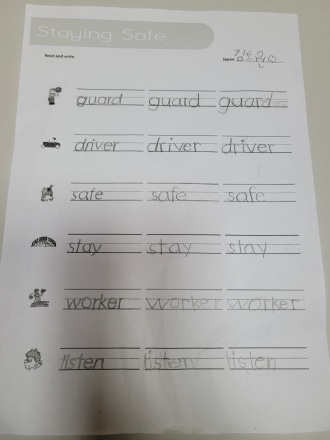 Staying Safe
Read and write.
Name:
guard guard guard
driver driver driver
safe safe safe
stay stay stay
worker worker worker
listen listen listen